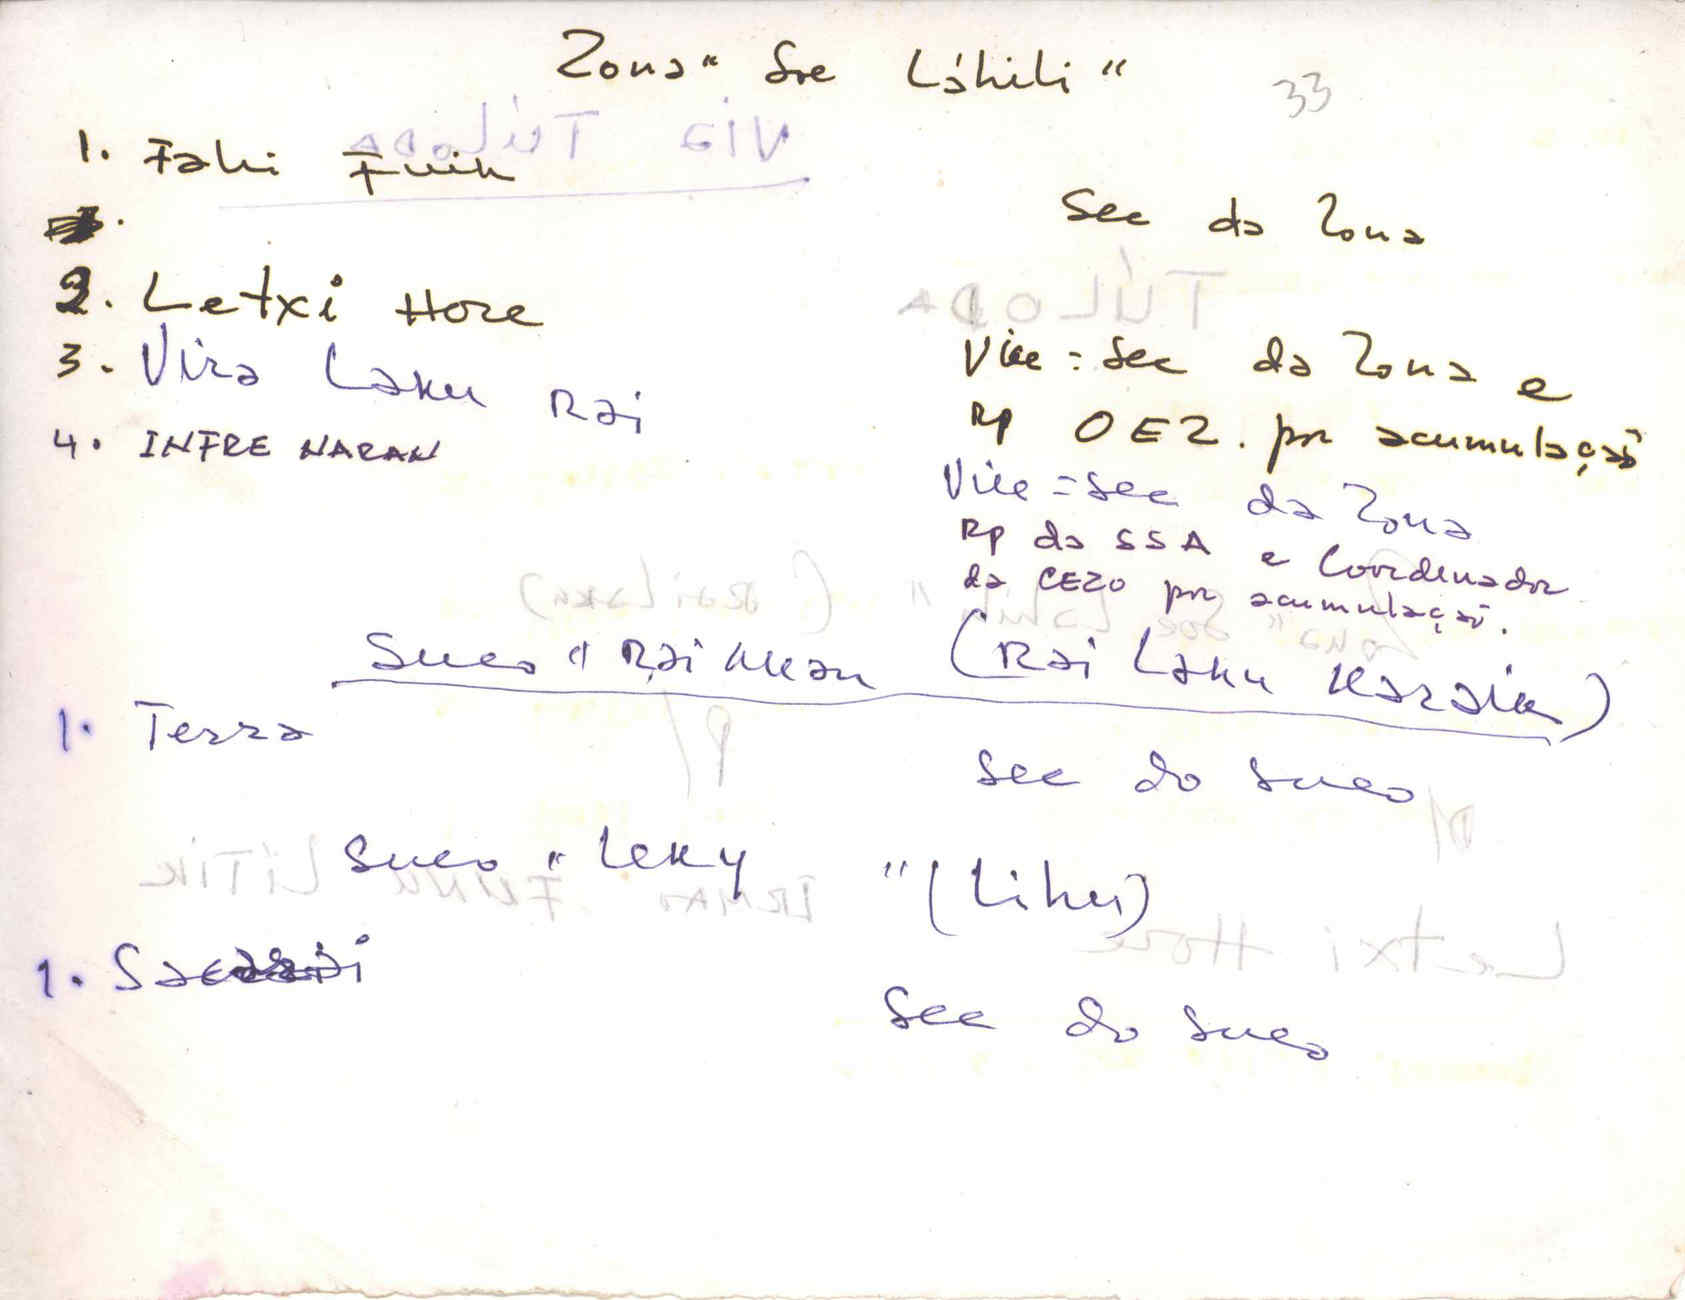 Zona "Soe Láhili"
33
1. Fahi Fuik
Sec da Zona
2. Letxi Hore
Vice=Sec da Zona e
Rp OEZ. por acumulação
3. Vira Laku Rai
Vice=Sec da Zona
4. INFRE NARAN
Rp da SSA e Coordenador
da CEZO por acumulação.
Suco "Rai Mean (Rai Laku Karaik)
1. Terra
Sec do Suco
Suco "Leky" (Lihu)
1.
Sec do Suco